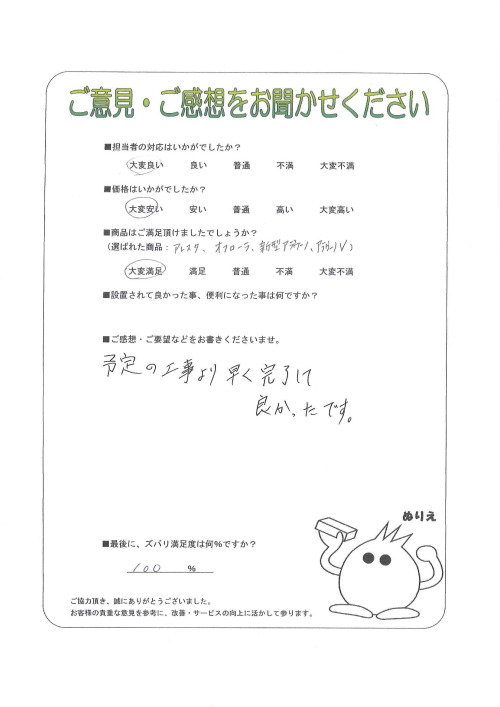 ご意見・ご感想をお聞かせください
■担当者の対応はいかがでしたか？
大変良い 良い 普通 不満 大変不満
■価格はいかがでしたか？
大変安い 安い 普通 高い 大変高い
■商品はご満足頂けましたでしょうか？
（選ばれた商品：アレスタ、オフローラ、新型アラウーノ、アラウーノV）
大変満足 満足 普通 不満 大変不満
■設置されて良かった事、便利になった事は何ですか？
■ご感想・ご要望などをお書きくださいませ。
予定の工事より早く完了して
良かったです。
ぬりえ
■最後に、ズバリ満足度は何%ですか？
100 %
ご協力頂き、誠にありがとうございました。
お客様の貴重な意見を参考に、改善・サービスの向上に活かして参ります。